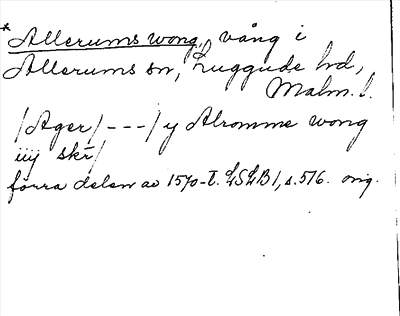 * Allerums wong, vång i
Allerums sn, Luggude hd,
Malm. l.
/Ager/ - - - / y Alromme wong
iiij skr/
förra delen av 1570-t. LSLB 1, s. 516. orig.